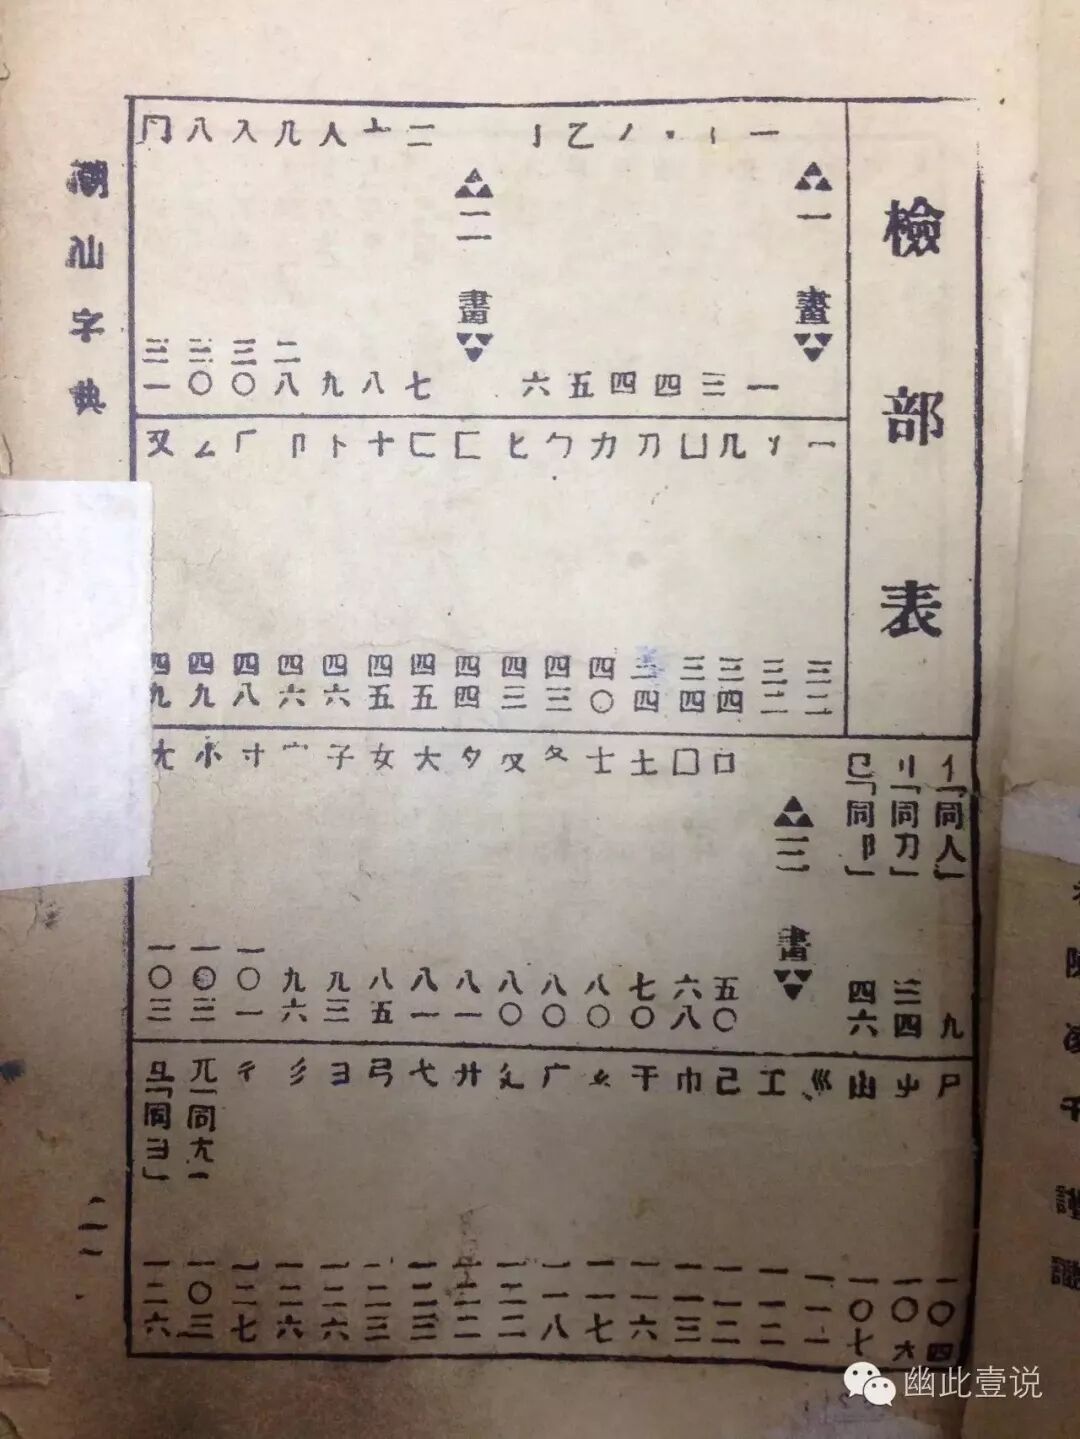 檢部表
一畫
一 一
丨 三
丶 四
丿 四
乙 五
亅 六
二畫
二 七
亠 八
人 九
儿 二八
入 三〇
八 三〇
冂 三一
冖 三二
冫 三二
几 三四
凵 三四
刀 三四
力 四〇
勹 四三
匕 四三
匚 四四
匸 四五
十 四五
卜 四六
卩 四六
厂 四八
厶 四九
又 四九
亻「同人」 九
刂「同刀」 三四
㔾「同卩」 四六
三畫
口 五〇
囗 六八
土 七〇
士 八〇
夂 八〇
夊 八〇
夕 八一
大 八一
女 八五
子 九三
宀 九六
寸 一〇一
小 一〇三
尢 一〇三
尸 一〇四
屮 一〇六
山 一〇七
巛 一一一
工 一一二
己 一一二
巾 一一三
干 一一六
幺 一一七
广 一一八
廴 一二二
廾 一二二
弋 一二三
弓 一二三
彐 一二六
彡 一二六
彳 一二七
兀「同尢」 一〇三
彑「同彐」 一二六
潮汕字典
二
幽此壹说